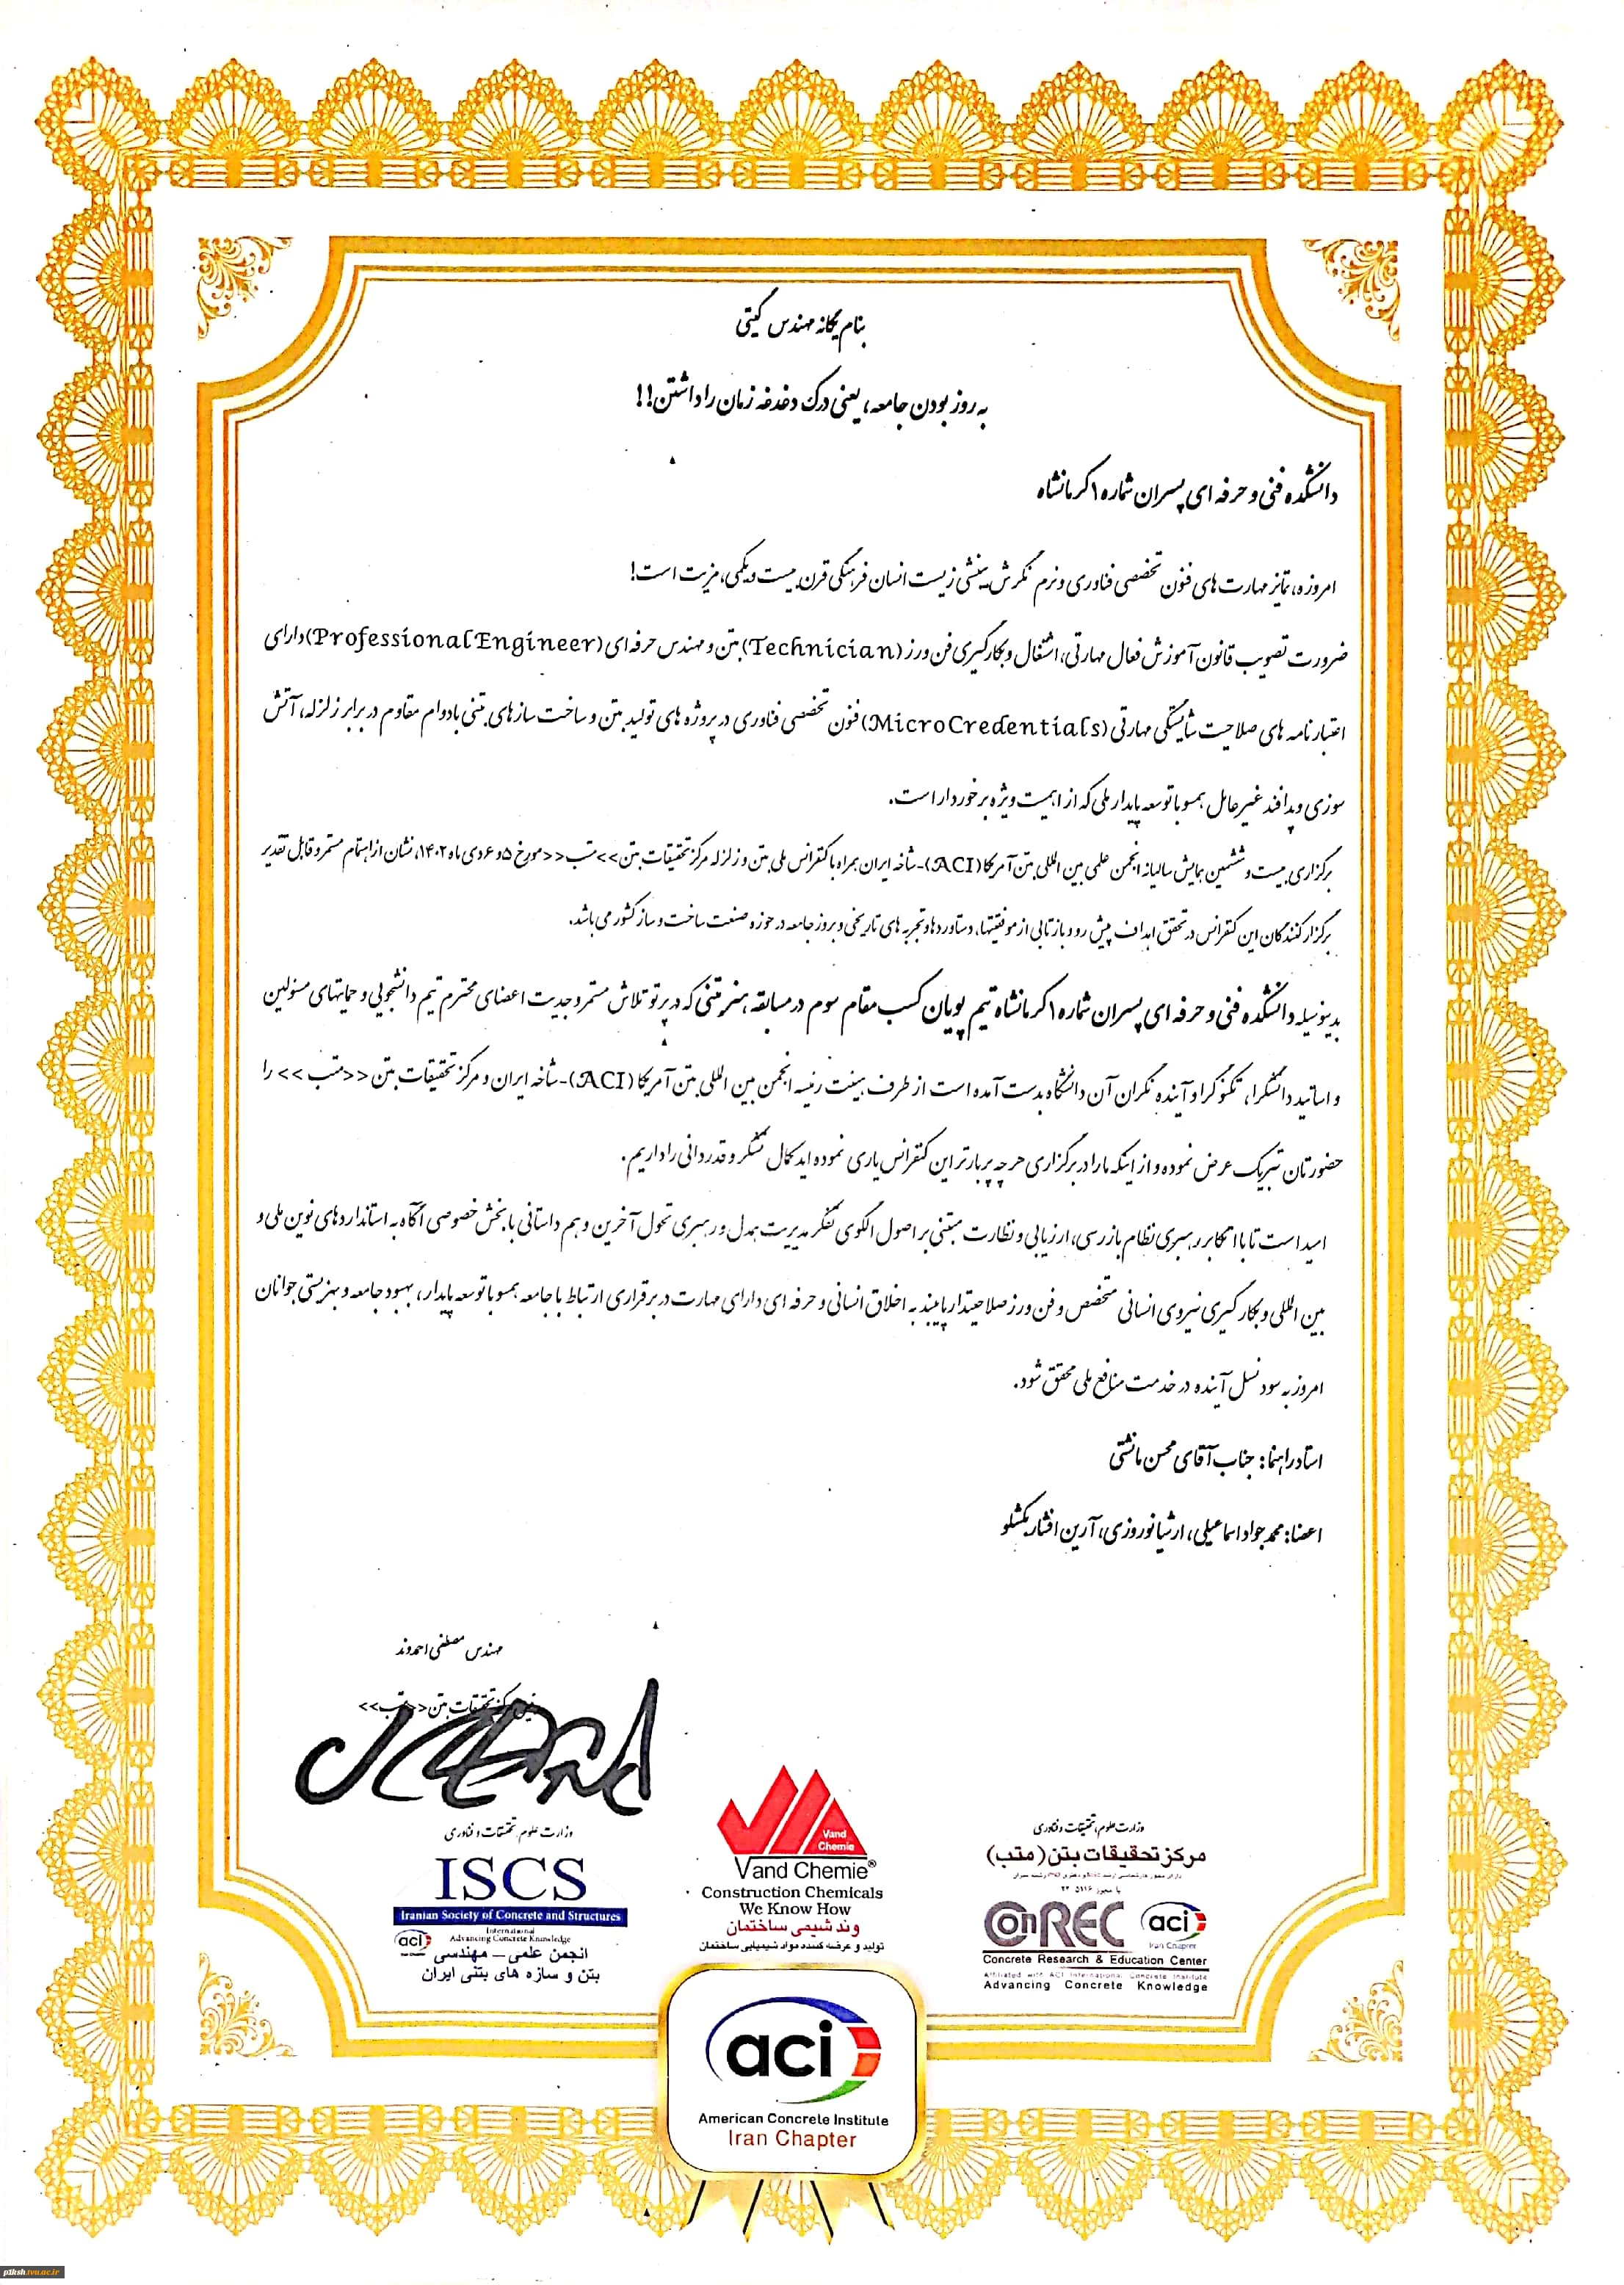 بنام یگانه مهندس گیتی
به روز بودن جامعه، یعنی درک دغدغه زمان را داشتن!!
دانشکده فنی و حرفه ای پسران شماره ۱ کرمانشاه
امروزه، تمایز مهارت های فنون تخصصی فناوری و نرم نگرش بینشی زیست انسان فرهنگی قرن بیست و یکمی، مزیت است!
ضرورت تصویب قانون آموزش فعال مهارتی، اشتغال و بکارگیری فن ورز (Technician) بتن و مهندس حرفه ای (Professional Engineer) دارای
اعتبارنامه های صلاحیت شایستگی مهارتی (MicroCredentials) فنون تخصصی فناوری در پروژه های تولید بتن و ساخت سازهای بتنی بادوام مقاوم در برابر زلزله، آتش
سوزی و پدافند غیرعامل همسو با توسعه پایدار ملی که از اهمیت ویژه برخوردار است.
برگزاری بیست و ششمین همایش سالیانه انجمن علمی بین المللی بتن آمریکا (ACI)-شاخه ایران همراه با کنفرانس ملی بتن و زلزله مرکز تحقیقات بتن >>متب<< مورخ ۵ و ۶ دی ماه ۱۴۰۲، نشان از اهتمام مستمر و قابل تقدیر
برگزار کنندگان این کنفرانس در تحقق اهداف پیش رو و بازتابی از موفقیتها، دستاوردها و تجربه های تاریخی و بروز جامعه در حوزه صنعت ساخت و ساز کشور می باشد.
بدینوسیله دانشکده فنی و حرفه ای پسران شماره ۱ کرمانشاه تیم پویان کسب مقام سوم در مسابقه هنر بتنی که در پرتو تلاش مستمر و جدیت اعضای محترم تیم دانشجویی و حمایتهای مسئولین
و اساتید دانشگرا، تکنوگرا و آینده نگران آن دانشگاه بدست آمده است از طرف هیئت رئیسه انجمن بین المللی بتن آمریکا (ACI)-شاخه ایران و مرکز تحقیقات بتن <<متب>> را
حضورتان تبریک عرض نموده و از اینکه ما را در برگزاری هرچه پربارتر این کنفرانس یاری نموده اید کمال تشکر و قدردانی را داریم.
امید است تا با اتکا بر رهبری نظام بازرسی، ارزیابی و نظارت مبتنی بر اصول الگوی تفکر مدیریت همدل و رهبری تحول آخرین و هم داستانی با بخش خصوصی آگاه به استانداردهای نوین ملی و
بین المللی و بکارگیری نیروی انسانی متخصص و فن ورز صلاحیتدار پایبند به اخلاق انسانی و حرفه ای دارای مهارت در برقراری ارتباط با جامعه همسو با توسعه پایدار، بهبود جامعه و بهزیستی جوانان
امروز به سود نسل آینده در خدمت منافع ملی محقق شود.
استاد راهنما: جناب آقای محسن مانشتی
اعضا: محمدجواد اسماعیلی، ارشیا نوروزی، آرین افشار یکشلو
مهندس مصطفی احمدوند
مرکز تحقیقات بتن <<متب>>
وزارت علوم، تحقیقات و فناوری
ISCS
Iranian Society of Concrete and Structures
aci
International
Advancing Concrete Knowledge
انجمن علمی – مهندسی
بتن و سازه های بتنی ایران
Vand
Chemie
Vand Chemie®
Construction Chemicals
We Know How
وند شیمی ساختمان
تولید و عرضه کننده مواد شیمیایی ساختمان
وزارت علوم، تحقیقات و فناوری
مرکز تحقیقات بتن (متب)
ConREC
aci
Iran Chapter
Concrete Research & Education Center
Affiliated with ACI International Concrete Institute
Advancing Concrete Knowledge
aci
American Concrete Institute
Iran Chapter
p1ksh.tvu.ac.ir